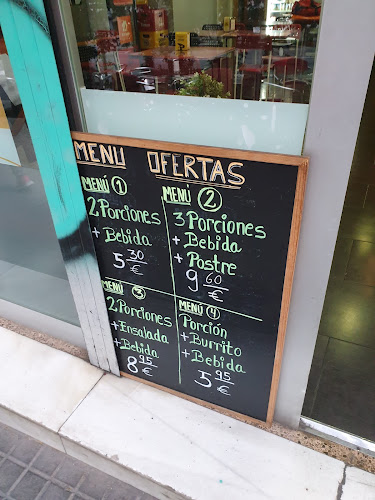 MENU OFERTAS
MENÚ 1
2 Porciones
+ Bebida
5 30 €
MENÚ 2
3 Porciones
+ Bebida
+ Postre
9 60 €
MENÚ 3
2 Porciones
+ Ensalada
+ Bebida
8 95 €
MENÚ 4
Porción
+ Burrito
+ Bebida
5 95 €